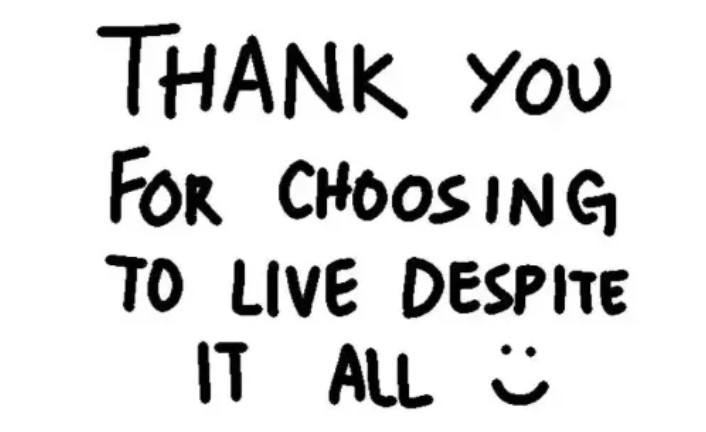 THANK YOU
FOR CHOOSING
TO LIVE DESPITE
IT ALL